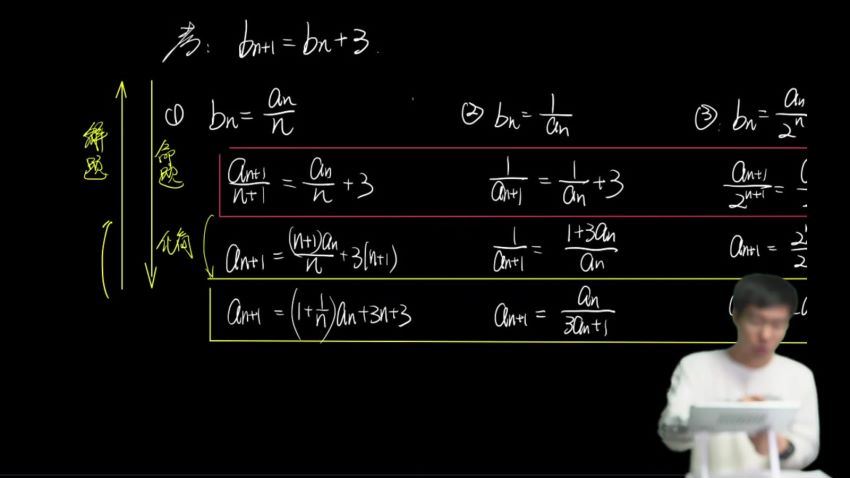 考: bn+1 = bn + 3.
① bn = an/n ② bn = 1/an ③ bn = an/2^n
解题 命题
an+1/(n+1) = an/n + 3 1/an+1 = 1/an + 3 an+1/2^(n+1) =
化简
an+1 = (n+1)an/n + 3(n+1) 1/an+1 = (1+3an)/an an+1 =
an+1 = (1+1/n)an + 3n + 3 an+1 = an/(3an+1)